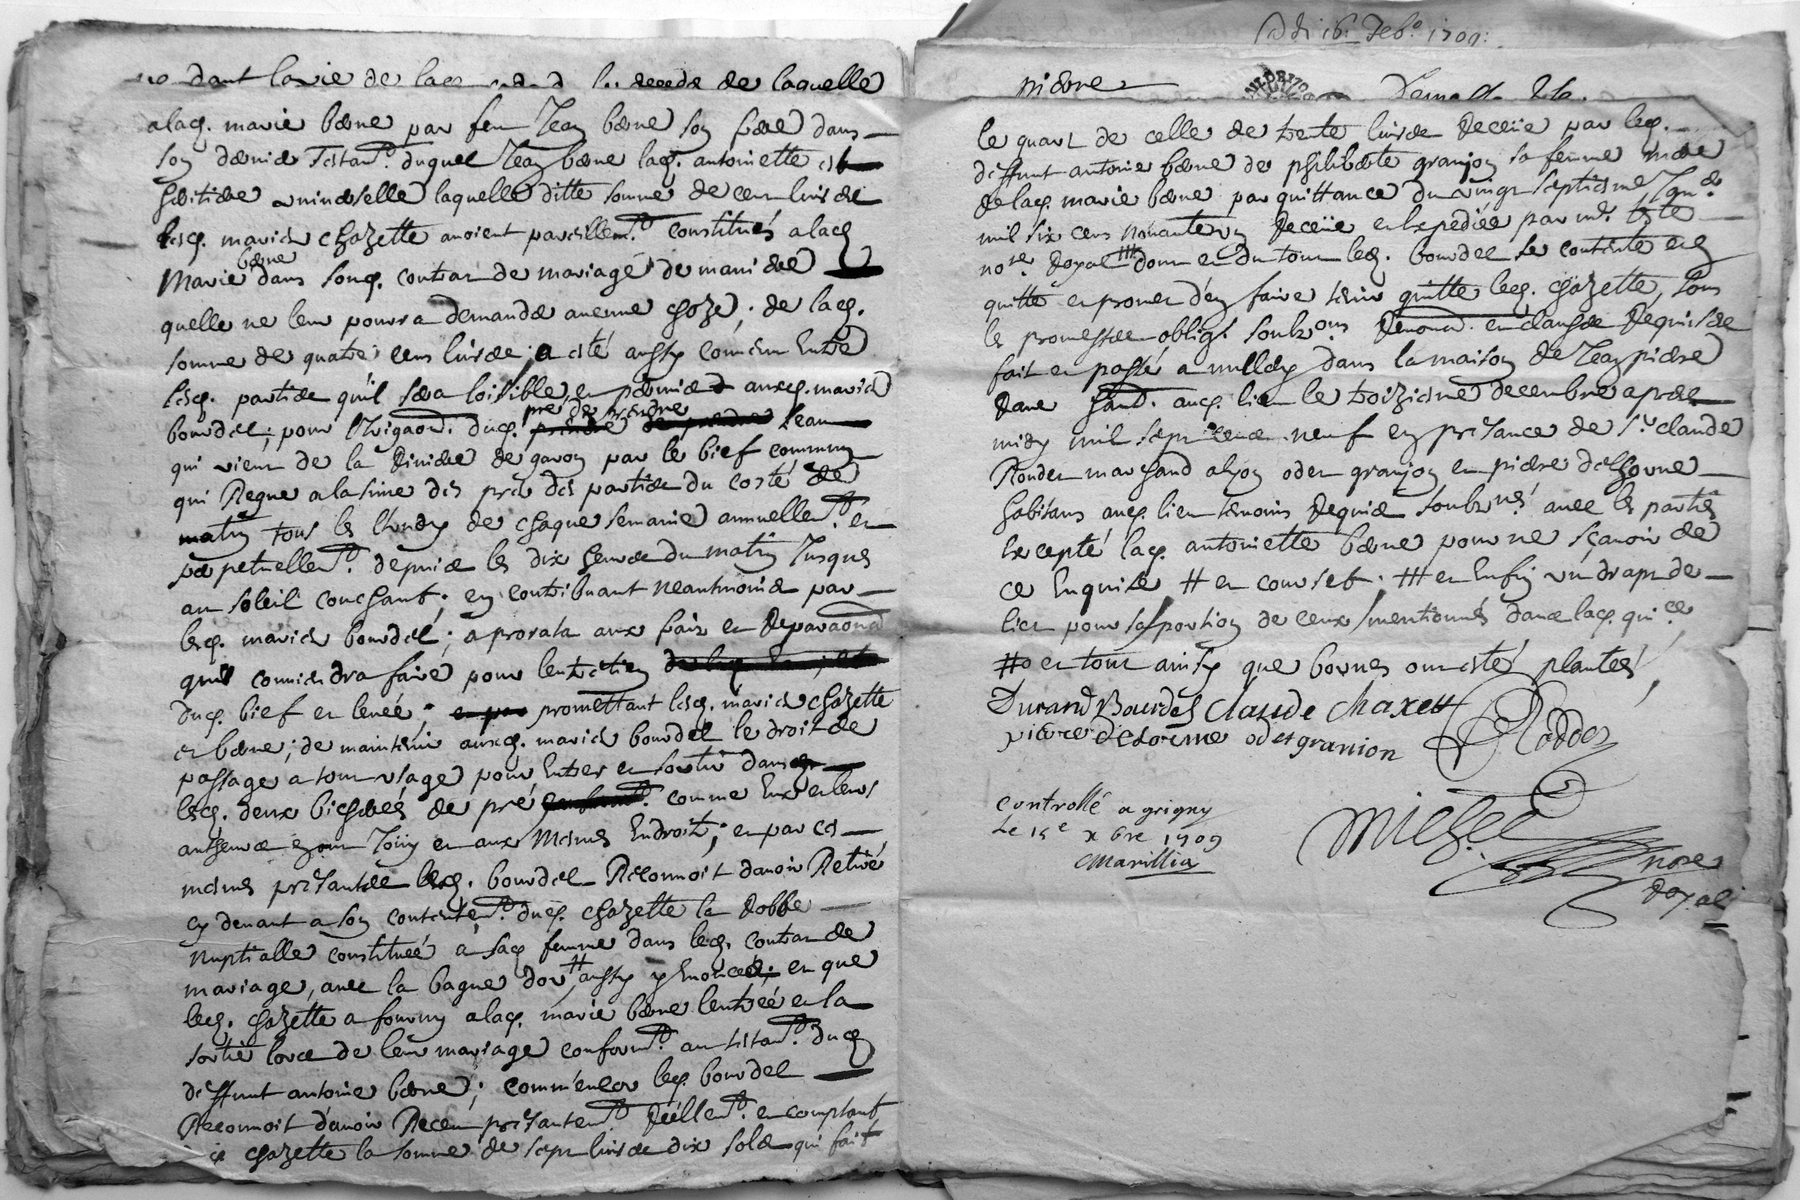 dant la vie de lad. le decedz de laquelle
alad. marie berne par feu Jean berne son frere dans
son dernier Testamt. duquel Jean berne lad. antoiette est
heritiere universelle laquelle ditte somme de cent livres
lesd. mariés chazette avoient pareillemt. constitués a lad.
Marie berne dans sond. contrat de mariage de maniere
quelle ne leur pourra demander aucune choze, de lad.
somme de quatre cens livres; a esté aussy convenu Entre
lesd. parties qu'il sera loisible, et permis auxd. mariés
bourdel; pour l'Irigaon. dud. pré de prendre l'eau
qui vient de la Riviere de garon par le bief commun
qui Regne a la sime des prés des parties du costé de
matin tous les lundy de chaque semaine annuellemt. et
perpetuellemt. depuis les dix heures du matin Jusques
au soleil couchant; en contribuant neantmoins par
lesd. mariés bourdel; a prorata aux frais et Reparaons
quil conviendra faire pour lentretien
dud. bief et levée; promettant lesd. mariés chazette
et berne; de maintenir auxd. mariés bourdel le droit de
passage a tout usage pour Entrer et sortir dans
lesd. deux bicherées de pré comme Eux et leurs
autheurs en ont Jouy et aux Mesmes Endroits; et par ces
mesmes presantes led. bourdel Reconnoit davoir Retiré
cy devant a son contentemt. dud. chazette la Robbe
nuptialle constituée à sad. femme dans led. contrat de
mariage, avec la bague dor # aussy y Enoncée; et que
led. chazette a fourny a lad. marie berne lentrée et la
sortie lors de leur mariage conformt. au testamt. dud.
deffunt antoine berne; comm'encor led. bourdel
Reconnoit d'avoir Receu presantemt. Réellemt. et comptant
chazette la somme de sept livres dix sols qui fait
Adi 16. Feb.o 1709:
pierre
le quart de celle de trente livres Receüe par led.
deffunt antoine berne de philiberte granjon sa femme mere
de lad. marie berne par quittance du vingt septiesme Janer.
mil six cens nonante un Receüe et Expediée par me. teste
nore. Royal ### dont et du tout led. bourdel se contente en
quitte et promet d'en faire tenir quitte led. chazette, sous
les promesses obligs. soubzons Renond. et clauses Requises
fait et passé a milery dans la maison de Jean pierre
dans aud. lieu le troiziesme decembre apres
midy mil sept cens neuf en presance de sr. claude
Rondet marchand alyon odet granjon et pierre delhorme
habitans aud. lieu temoins Requis soubznés avec les parties
Excepté lad. antoinette berne pour ne sçavoir de
ce Enquise # et corset. ### et Enfin un drap de
lict pour sa portion de ceux mentionnés dans lad. quice
##o et tout ainsy que bornes ont esté plantées
Durand Bourdel Claude chaxett
pierre delorme odet granion Roddet
controllé a grigny
le 15e xbre 1709
Marillia
Michel
nore
Royal